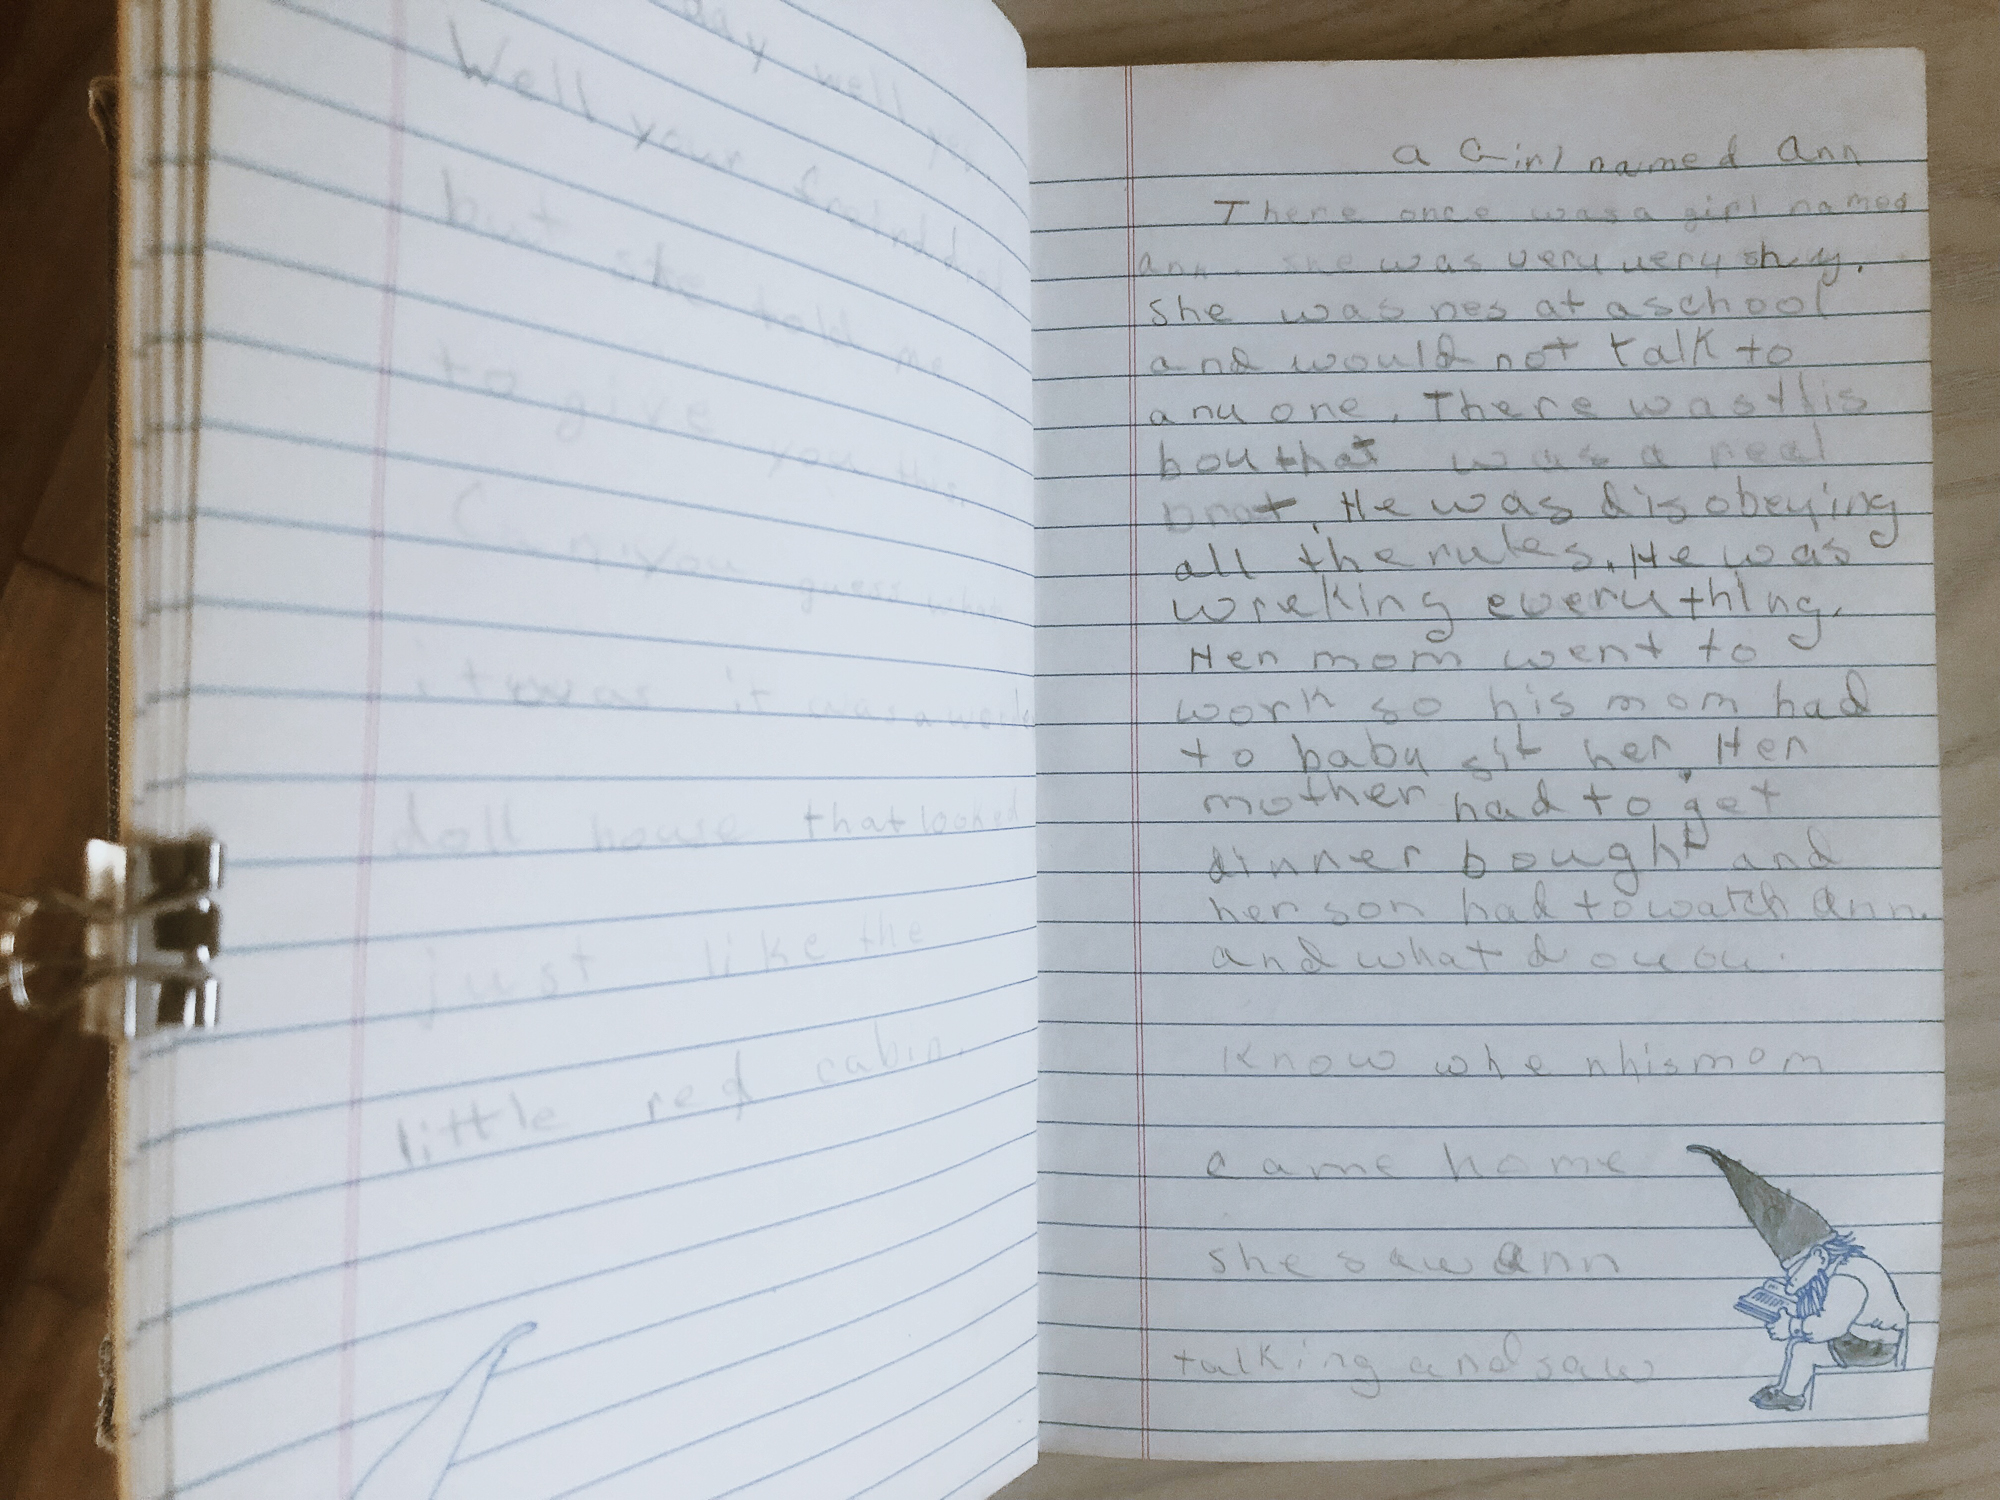 day well
Well your freind
but she told me
to give you this.
Can you guess what
it was it was a
doll house that looked
just like the
little red cabin.
a Girl named Ann
There once was a girl named
ann. she was very very shy.
she was nes at a school
and would not talk to
anu one. There was this
bou that was a real
brat. He was disobeying
all the rules. He was
wreking everuthing.
Her mom went to
work so his mom had
to babu sit her. Her
mother had to get
dinner bought and
her son had to watch ann.
and what do uou.
know when his mom
came home
she saw ann
talking and saw